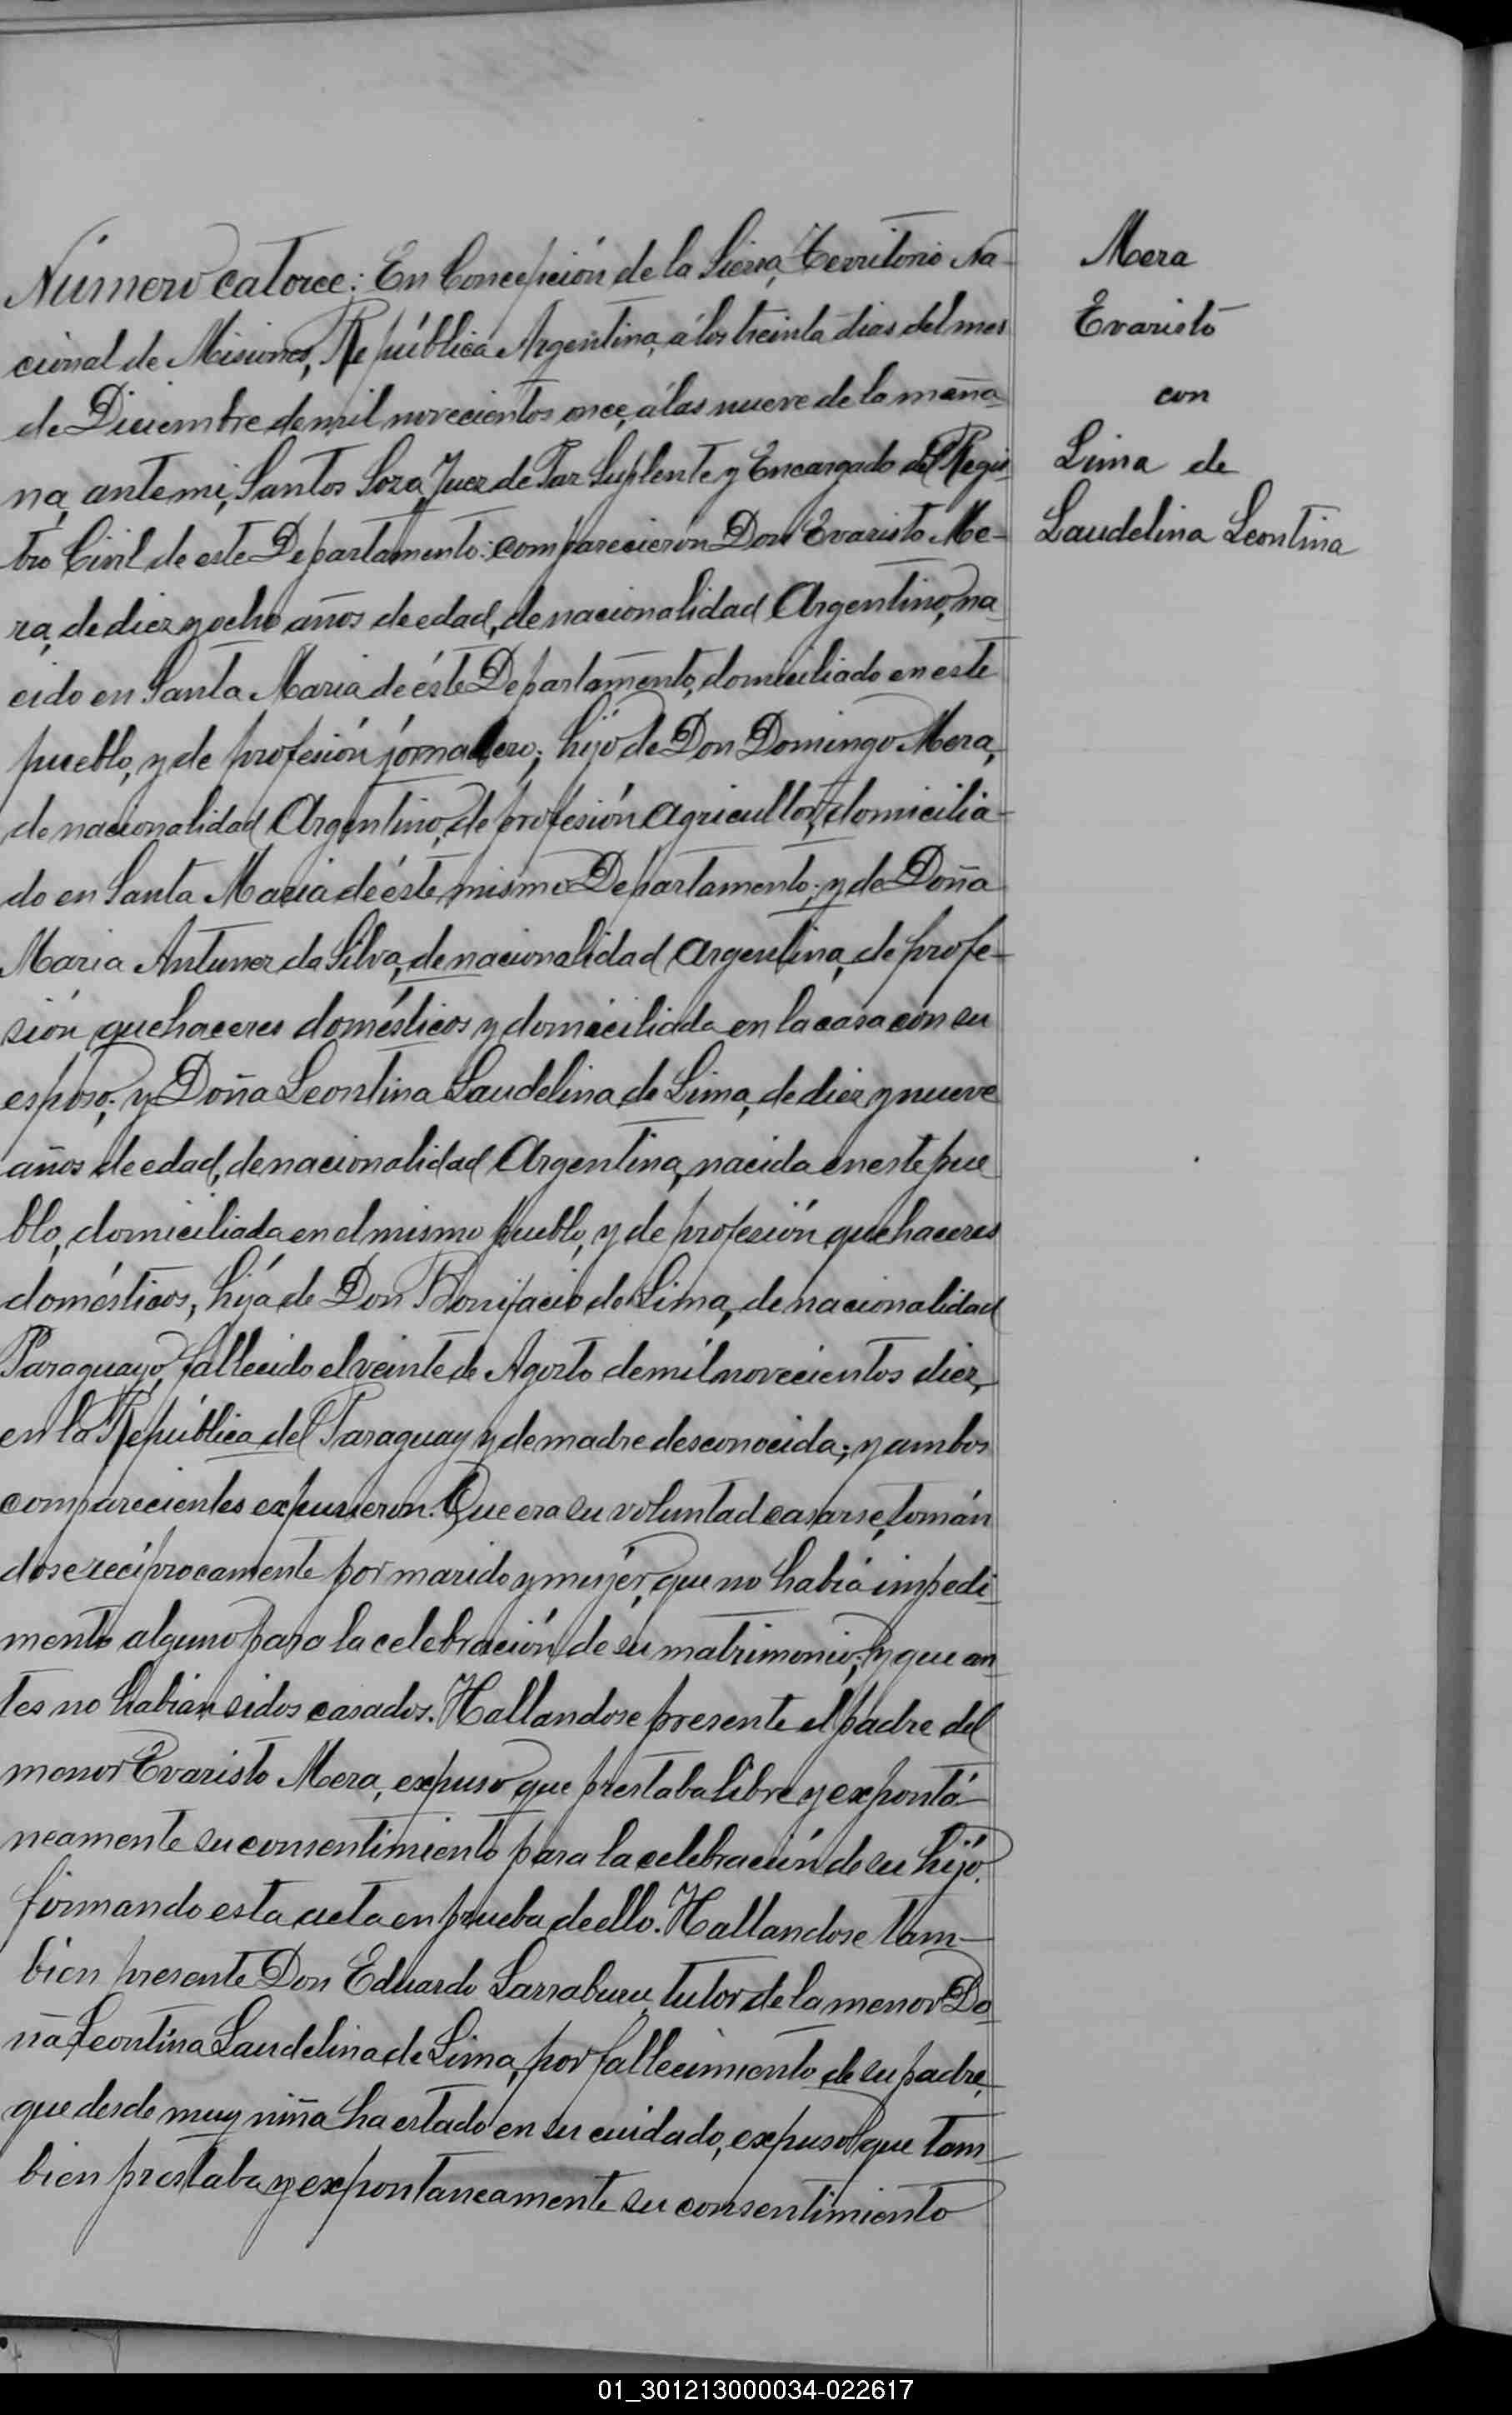 Número catorce: En Concepción de la Sierra, Territorio Na-
cional de Misiones, República Argentina, á los treinta dias del mes
de Diciembre de mil novecientos once, á las nueve de la maña-
na, ante mi, Santos Soza, Juez de Paz Suplente y Encargado del Regis-
tro Civil de este Departamento: comparecieron Don Evaristo Me-
ra, de diez y ocho años de edad, de nacionalidad Argentino, na-
cido en Santa Maria de éste Departamento, domiciliado en este
pueblo, y de profesión jornalero; hijo de Don Domingo Mera,
de nacionalidad Argentino, de profesión agricultor, domicilia-
do en Santa Maria de éste mismo Departamento; y de Doña
Maria Antunez da Silva, de nacionalidad argentina, de profe-
sión quehaceres domésticos y domiciliada en la casa con su
esposo; y Doña Leontina Laudelina de Lima, de diez y nueve
años de edad, de nacionalidad Argentina, nacida en este pue
blo, domiciliada en el mismo pueblo, y de profesión quehaceres
domésticos, hija de Don Bonifacio de Lima, de nacionalidad
Paraguayo, fallecido el veinte de Agosto de mil novecientos diez,
en la República del Paraguay y de madre desconocida; y ambos
comparecientes expusieron: Que era su voluntad casarse, tomán
dose recíprocamente por marido y mujér, que no habia impedi-
mento alguno para la celebración de su matrimonio; y que an-
tes no habian sidos casados. Hallandose presente el padre del
menor Evaristo Mera, expuso que prestaba libre y expontá-
neamente su consentimiento para la celebración de su hijo.
firmando esta acta en prueba de ello. Hallandose tam-
bien presente Don Eduardo Larraburu, tutor de la menor Do-
ña Leontina Laudelina de Lima, por fallecimiento de su padre,
que desde muy niña ha estado en su cuidado, expuso que tam-
bien prestaba y expontaneamente su consentimiento
Mera
Evaristo
con
Lima de
Laudelina Leontina
01_301213000034-022617